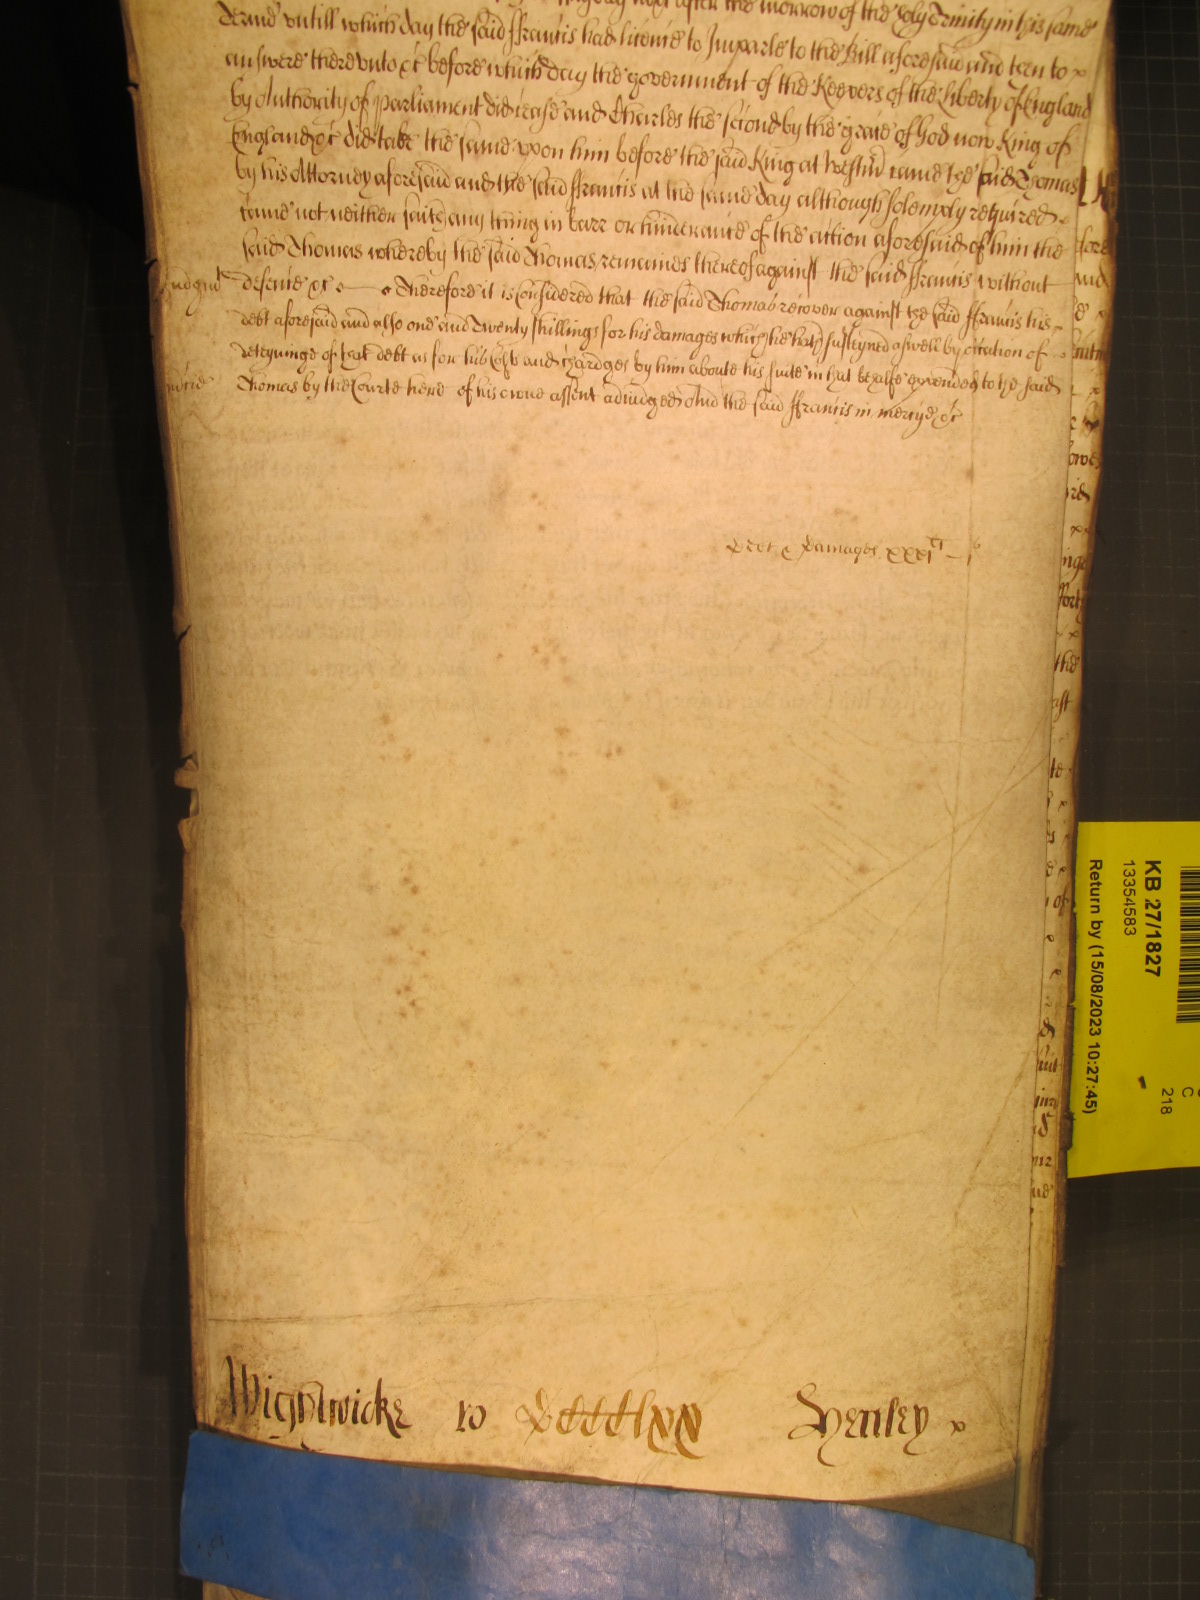 after the morrow of the holy Trinity in this same
Terme untill which day the said ffrancis had licence to Imparle to the bill aforesaid and then to x
answere thereunto &c before which day the government of the Keepers of the Liberty of England
by Authority of parliament did cease and Charles the second by the grace of God now King of
England &c did take the same upon him before the said King at Westmr came the said Thomas
by his Attorney aforesaid and the said ffrancis at the same day although solemply required
came not neither saith any thing in barr or hinderance of the action aforesaid of him the
said Thomas whereby the said Thomas remaines thereof against the said ffrancis without
Judgmt defence &c Therefore it is considered that the said Thomas recover against the said ffrancis his
debt aforesaid and also one and Twenty shillings for his damages which he hath susteyned aswell by occasion of
deteyninge of that debt as for his costs and chardges by him aboute his suite in that behalfe expended to the said
mercie Thomas by the Courte here of his owne assent adiudged And the said ffrancis in mercye &c
Debt & Damages xxxi li — i s
Wightwicke ro Dcccclxx Henley x
KB 27/1827
13354583
Return by (15/08/2023 10:27:45)
218
C